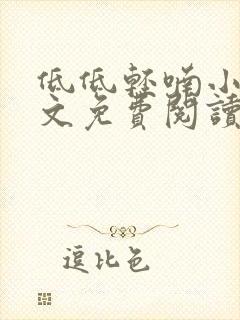 低低輕喃小
文免費閱讀
逗比色